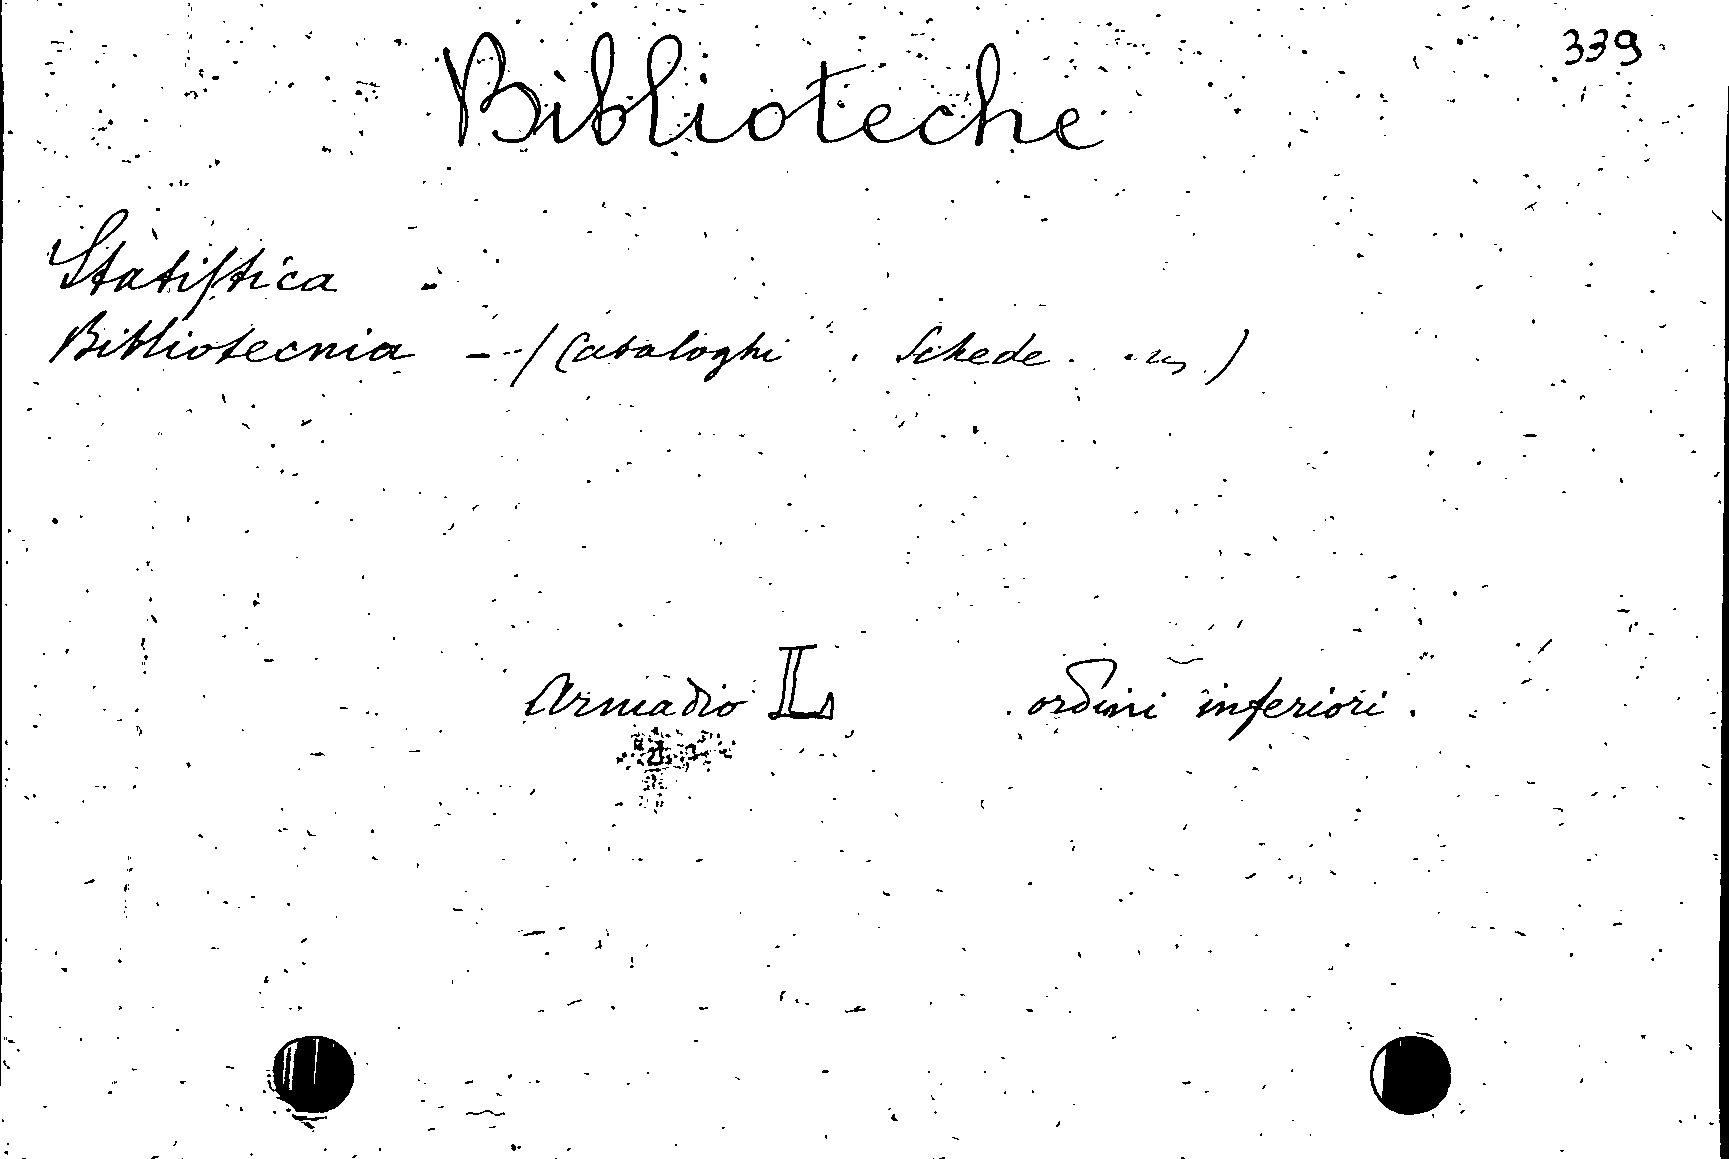 339
Biblioteche
Statistica -
Bibliotecnia - - (Cataloghi . Schede . )
Armadio L ordini inferiori .